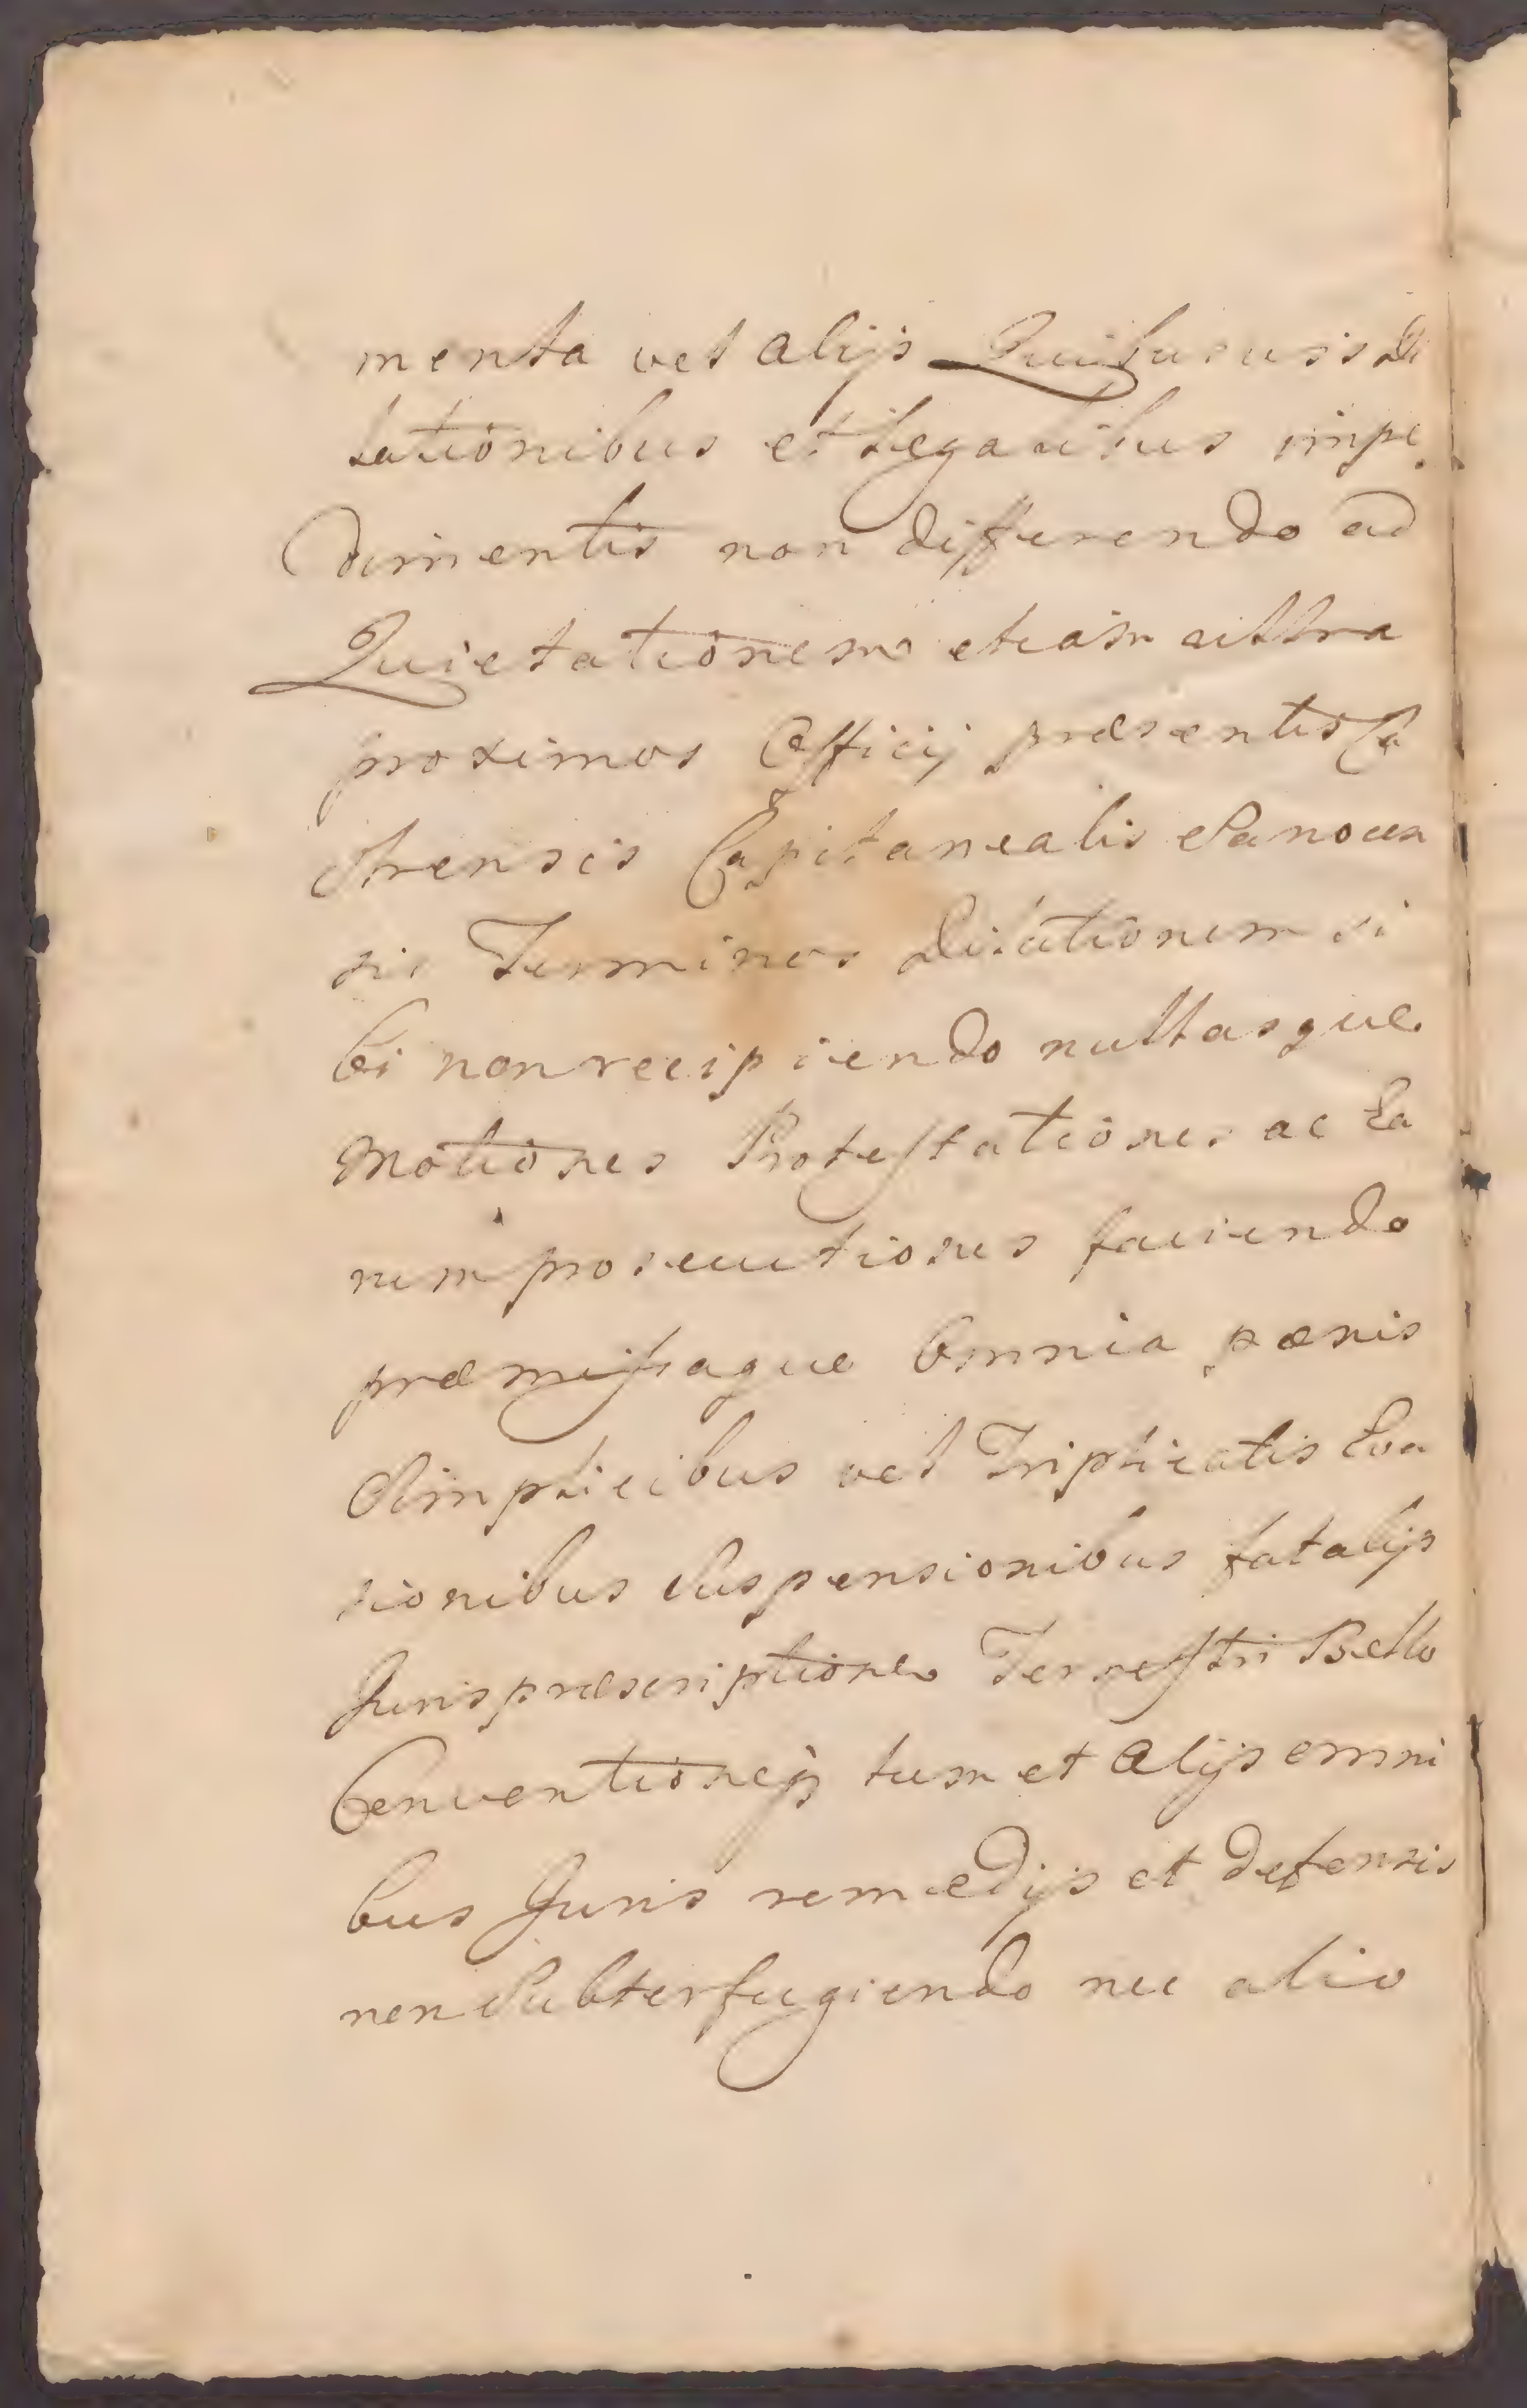 menta vel alijs Quibusuis di
lationibus et Legalibus impe
dimentis non differendo ad
Quietationem etiam ultra
proximos Officij præsentis Ca
strensis Capitanealis Sanocen
sis Terminos dilationem si
bi non recipiendo nullasque
Motiones Protestationes ac Ea
rum prosecutiones faciendo
præmissaque Omnia pænis
Simplicibus vel Triplicatis Eva
sionibus Suspensionibus fatalijs
Juris præscriptione Terrestri Bello
Conventioneq; tum et Alijs omni
bus Juris remedijs et defensis
non Subterfugiendo nec alio